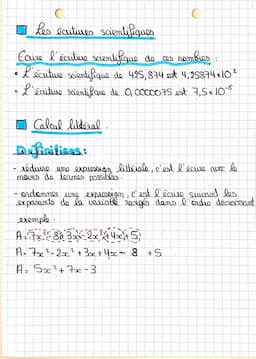 Les écritures scientifiques
Écrire l'écriture scientifique de ces nombres :
• L'écriture scientifique de 425,874 est 4,25874 x 10²
• L'écriture scientifique de 0,0000075 est 7,5 x 10⁻⁶
Calcul littéral.
Définitions :
- réduire une expression littérale, c'est l'écrire avec le
moins de termes possibles.
- ordonner une expression, c'est l'écrire suivant les
exposants de la variable rangés dans l'ordre décroissant
exemple :
A = 7x² - 8 + 3x - 2x² + 4x + 5
A = 7x² - 2x² + 3x + 4x - 8 + 5
A = 5x² + 7x - 3